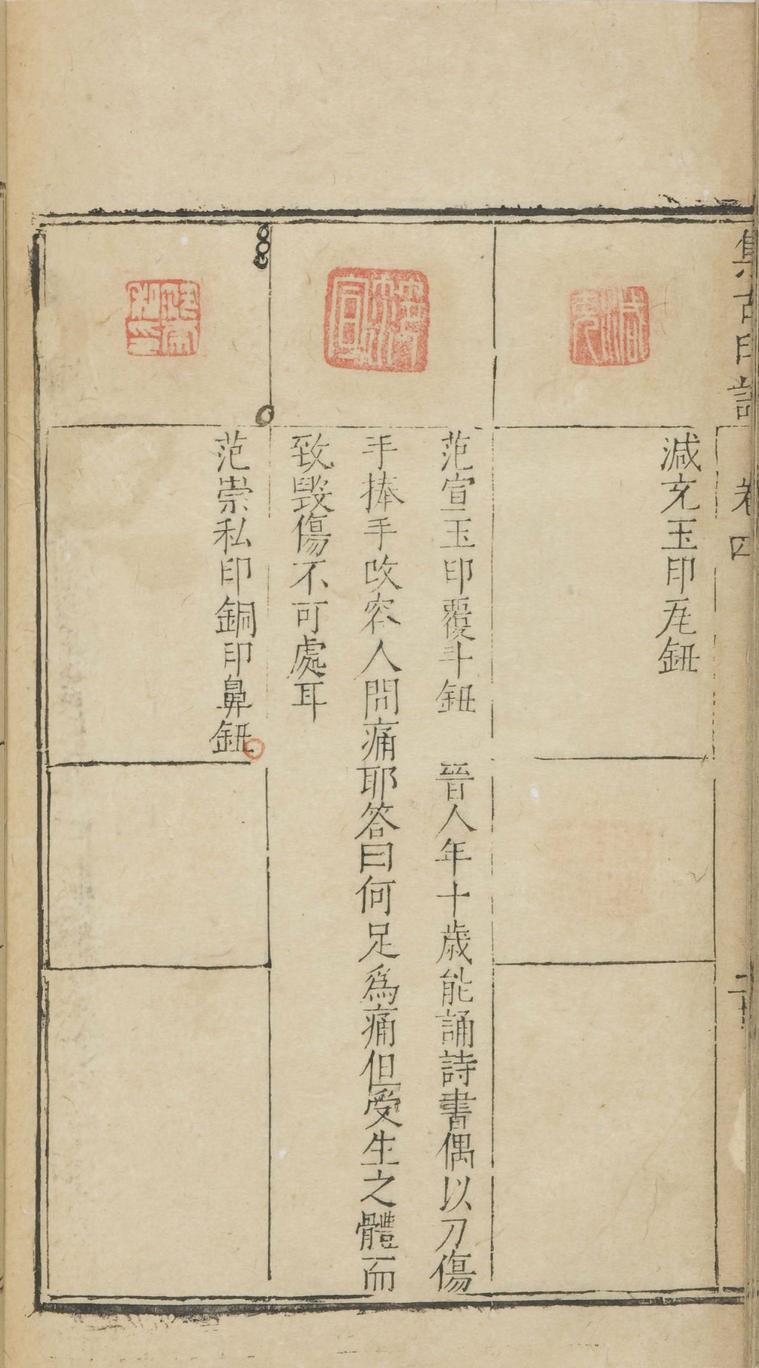 集古印譜
卷四
減充玉印瓦鈕
范宣玉印覆斗鈕 晉人年十歲能誦詩書偶以刀傷
手捧手改容人問痛耶答曰何足為痛但受生之體而
致毀傷不可處耳
范崇私印銅印鼻鈕